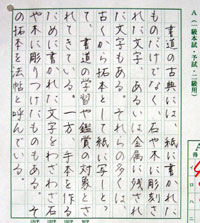 A（一級本試・予試・二級用）
書道の古典には、紙に書かれた
ものだけでなく、石や木に彫刻さ
れた文字、あるいは金属に残され
た文字もある。それらの多くは、
古くから拓本として紙に写しとっ
て、書道の学習や鑑賞の対象とさ
れてきている。一方、手本を作る
ために、書いた文字をわざわざ石
や木に彫りつけたものもある。そ
の拓本を法帖と呼んでいる。